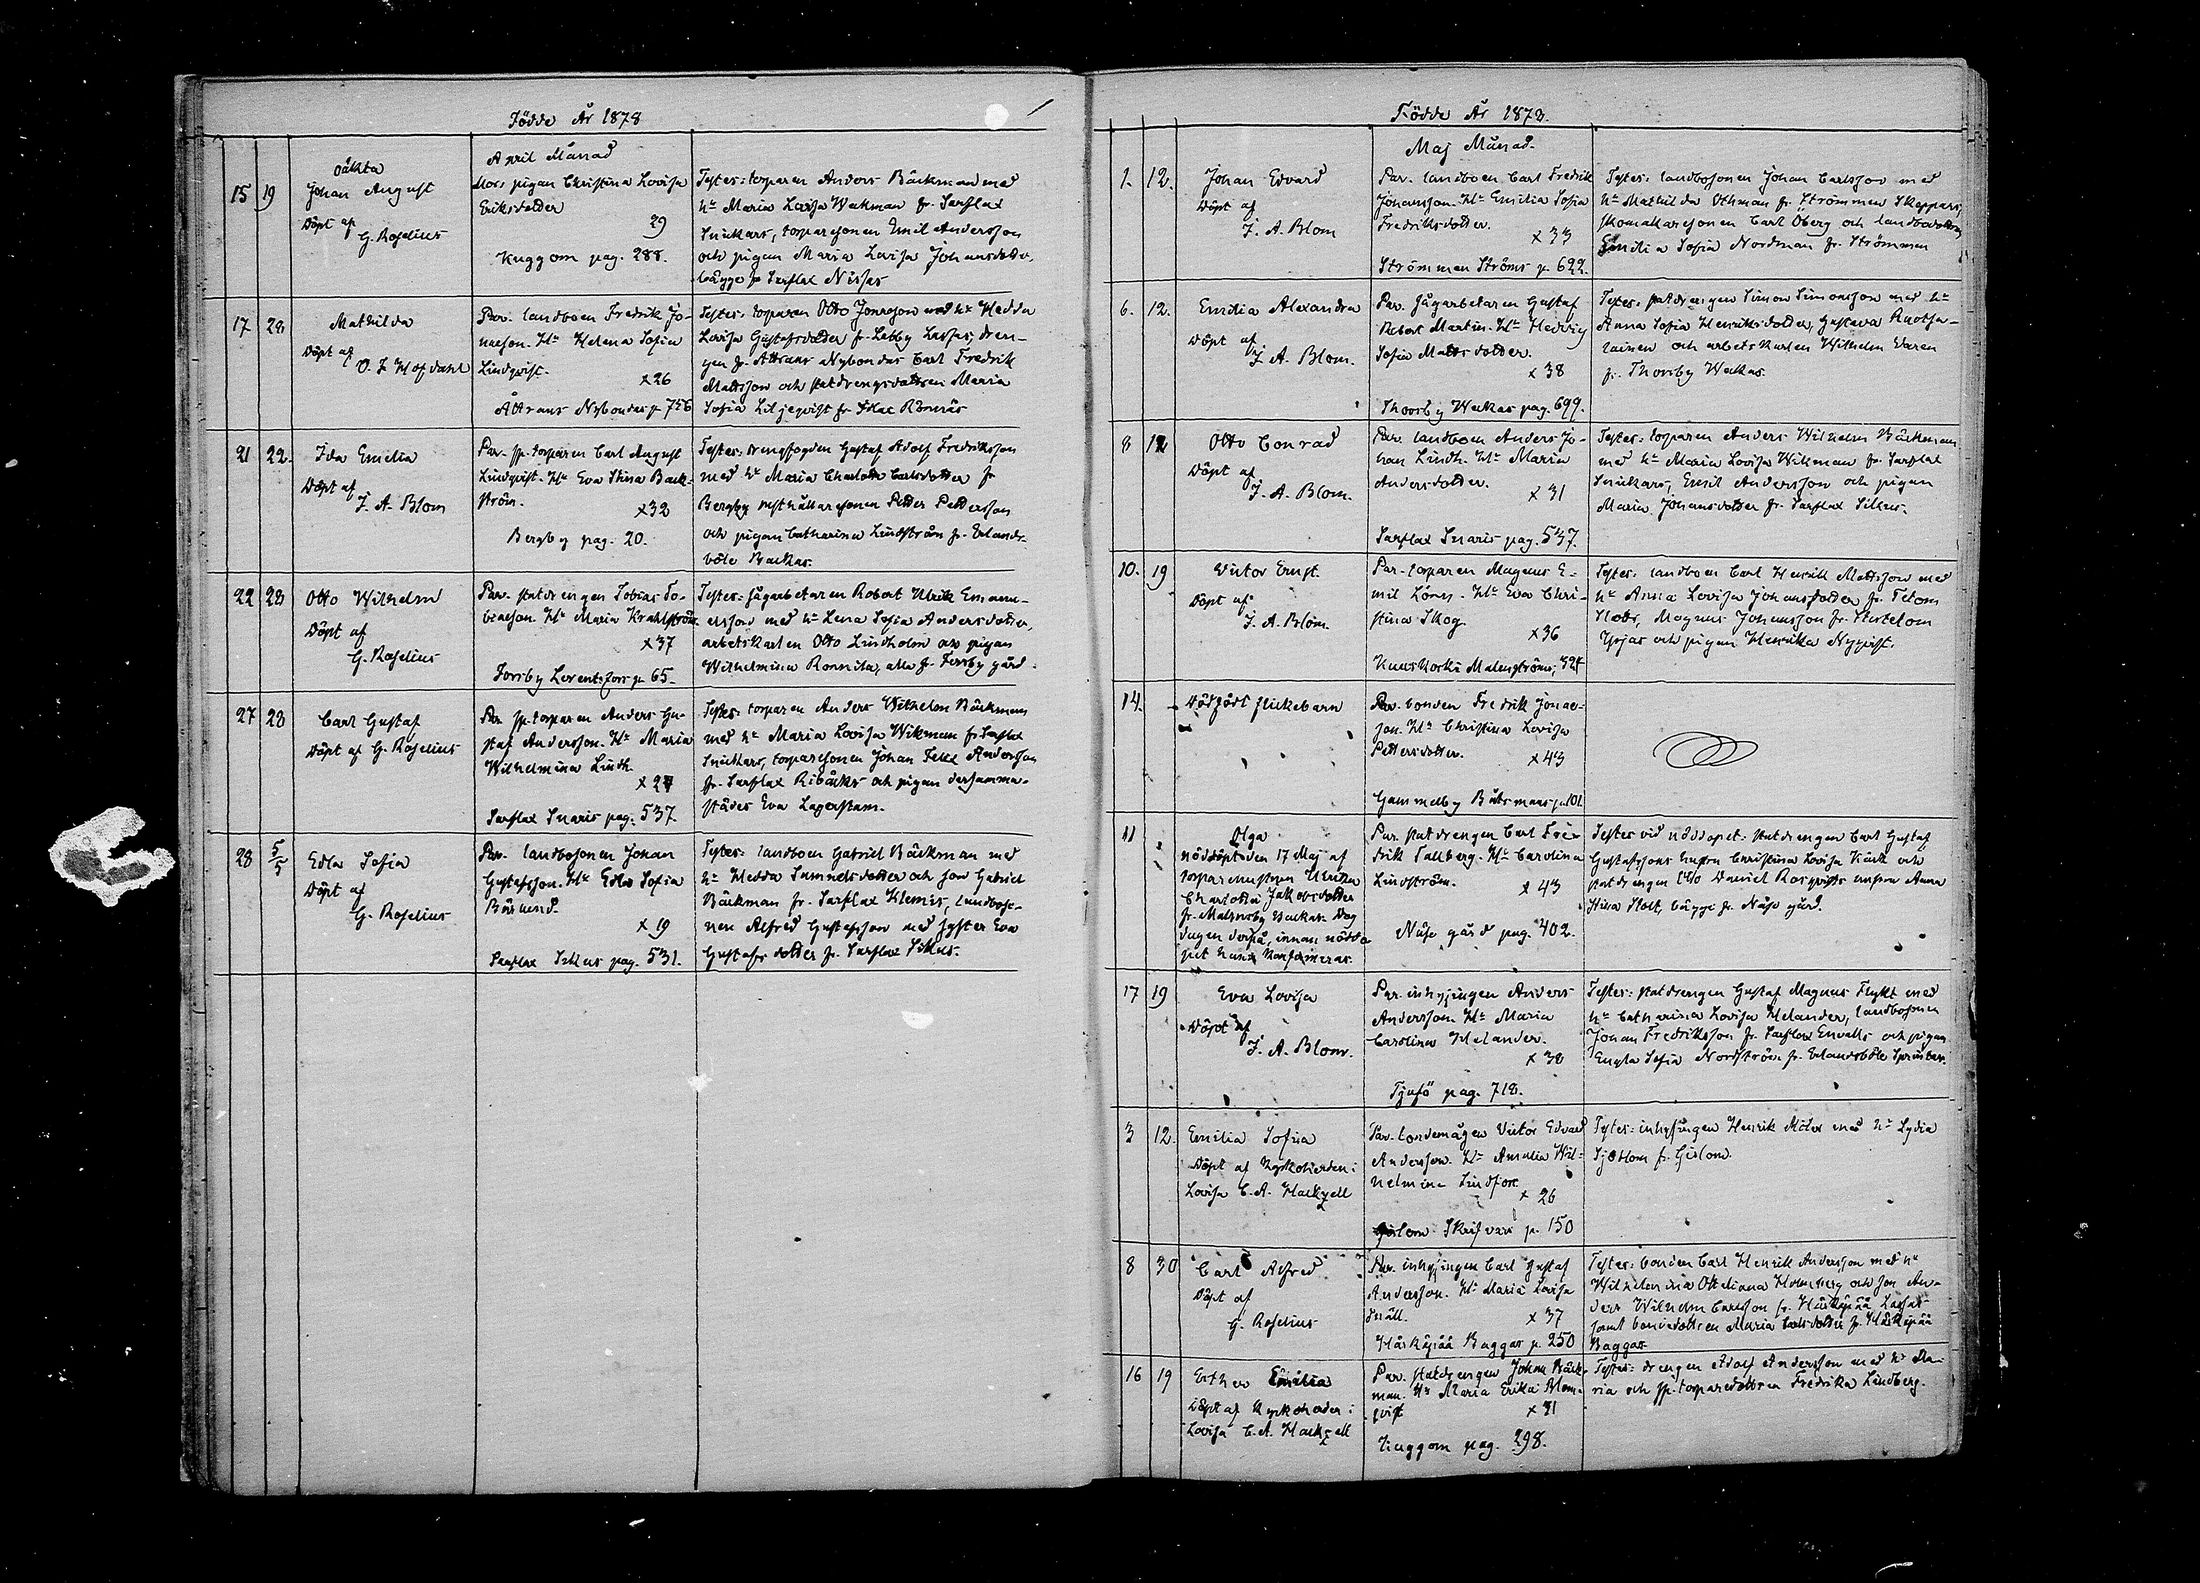 Födde År 1878
April Månad
15 19
oäkta
Johan August
Döpt af
G. Roselius
Mor: pigan Christina Lovisa
Eriksdotter
29
Kuggom pag. 288.
Testes: torparen Anders Bäckman med
hu Maria Lovisa Wekman fr. Sarflax
Snickars, torparesonen Emil Andersson
och pigan Maria Lovisa Johansdotter,
bägge fr Sarflax Nissas
17 28
Mathilda
Döpt af
O. I. Hofdahl
Par. landboen Fredrik Jo-
nasson. Hu Helena Sofia
Lindqvist.
x 26
Åttraus Nybondas p 756
Testes: torparen Otto Jonasson med hu Hedda
Lovisa Gustafsdotter fr. Labby Lassas, dren-
gen fr. Attraus Nybondas Carl Fredrik
Mattsson och statdrengsdottren Maria
Sofia Liljeqvist fr Skal Rönnäs
21 22.
Ida Emelia
Döpt af
J. A. Blom
Par. sp. torparen Carl August
Lindqvist. Hu Eva Stina Back-
ström.
x 32
Bergby pag. 20.
Testes: drengfogden Gustaf Adolf Fredriksson
med hu Maria Charlotta Carlsdotter fr
Bergby rusthållaresonen Petter Pettersson
och pigan Catharina Lindström fr. Erlands-
böle Backas.
22 28
Otto Wilhelm
Döpt af
G. Roselius
Par. statdrengen Tobias To-
biasson. Hu Maria Krahlström
x 37
Forsby Lorentzfors p 65.
Testes: sågarbetaren Robert Ulrik Emanu-
elsson med hu Lena Sofia Andersdotter,
arbetskarlen Otto Lindholm och pigan
Wilhelmina Ronnila, alla fr. Forsby gård.
27 28
Carl Gustaf
Döpt af G. Roselius
Par. sp. torparen Anders Gu-
staf Andersson. Hu Maria
Wilhelmina Lindh.
x 27
Sarflax Snaris pag. 537
Testes: torparen Anders Wilhelm Bäckman
med hu Maria Lovisa Wikman fr. Sarflax
Snickars, torparesonen Johan Felix Andersson
fr. Sarflax Ribäcks och pigan dersamma-
städes Eva Lagerstam.
28 5/5
Edla Sofia
Döpt af
G. Roselius
Par. landbosonen Johan
Gustafsson. Hu Edla Sofia
Bärlund.
x 19
Sarflax Sikus pag. 531.
Testes: landboen Gabriel Bäckman med
hu Hedda Samuelsdotter och son Gabriel
Bäckman fr. Sarflax Klemis, landboso-
nen Alfred Gustafsson med syster Eva
Gustafsdotter fr. Sarflax Sikus.
Födde År 1878.
Maj Månad.
1. 12.
Johan Edvard
Döpt af
J. A. Blom
Par. landboen Carl Fredrik
Johansson. Hu Emilia Sofia
Fredriksdotter.
x 33
Strömman Ströms p. 622.
Testes: landbosonen Johan Carlsson med
hu Mathilda Othman fr. Strömman Skeppars,
skomakaresonen Carl Öberg och landbodottren
Emilia Sofia Nordman fr. Strömman
6. 12.
Emilia Alexandra
Döpt af
J. A. Blom.
Par. sågarbetaren Gustaf
Robert Martin. Hu Hedvig
Sofia Mattsdotter.
x 38
Thorsby Weckas pag. 699.
Testes: statdrengen Simon Simonsson med hu
Anna Sofia Henriksdotter, Gustava Ruotsa-
lainen och arbetskarlen Wilhelm Waren
fr. Thorsby Weckas.
8 12
Otto Conrad
Döpt af
J. A. Blom.
Par. landboen Anders Jo-
han Lindh. Hu Maria
Andersdotter.
x 31
Sarflax Snaris pag. 537.
Testes: torparen Anders Wilhelm Bäckman
med hu Maria Lovisa Wikman fr. Sarflax
Snickars, Emil Andersson och pigan
Maria Johansdotter fr. Sarflax Sikus.
10. 19
Victor Ernst.
Döpt af
J. A. Blom.
Par. torparen Magnus E-
mil Löns. Hu Eva Chri-
stina Skog.
x 36
Kuuskoski Malmströms,
Testes: landboen Carl Henrik Mattsson med
hu Anna Lovisa Johansdotter fr. Tetom
Magnus Johansson fr.
och pigan Henrika Nyqvist.
14.
Dödfödt flickebarn
Par. bonden Fredrik Jonas-
son. Hu Christina Lovisa
Pettersdotter.
x 43
Gammelby Båtsmans p. 101
11
Olga
nöddöptes den 17 Maj af
torparehustrun Ulrika
Charlotta Jakobsdotter
fr. Malmsby Backas. Dog
dagen derpå, innan nöddo-
pet hann konfirmeras.
Par. statdrengen Carl Fre-
drik Tallberg. Hu Carolina
Lindström.
x 43
Näse gård pag. 402.
Testes vid nöddopet: statdrengen Carl Gustaf
Gustafssons hustru Christina Lovisa Käck och
statdrengen Otto Daniel Rosqvists hustru Anna
Stina Holt, bägge fr. Näse gård.
17 19
Eva Lovisa
Döpt af
J. A. Blom.
Par. inhysingen Anders
Andersson. Hu Maria
Carolina Helander.
x 38
Tjusö pag. 718.
Testes: statdrengen Gustaf Magnus Flykt med
hu Catharina Lovisa Helander, landbosonen
Johan Fredriksson fr. Sarflax Envalls och pigan
Engla Sofia Nordström fr. Erlandsböle
3 12.
Emilia Sofia
Döpt af Kyrkoherden i
Lovisa C. A. Hackzell
Par. bondemågen Victor Edvard
Andersson. Hu Amalia Wil-
helmina Lindfors
x 26
Gislom Skrifvars p. 150
Testes: inhysingen Henrik Möler med hu Lydia
Sjöblom fr. Gislom.
8 30
Carl Alfred
Döpt af
G. Roselius
Par. inhysingen Carl Gustaf
Andersson. Hu Maria Lovisa
Snäll.
x 37
Härkäpää Baggas p. 250
Testes: bonden Carl Henrik Andersson med hu
Wilhelmina Ottiliana Holmberg och son An-
ders Wilhelm Carlsson fr. Härkäpää Lassas
samt bondedottren Maria Carlsdotter fr. Härkäpää
Baggas
16 19
Esther Emilia
Döpt af Kyrkoherden i
Lovisa C. A. Hackzell
Par. statdrengen Johan Bäck-
man. Hu Maria Erika Blom-
qvist
x 31
Kuggom pag. 298.
Testes: drengen Adolf Andersson med hu Ma-
ria och sp. torparedottren Fredrika Lindberg.